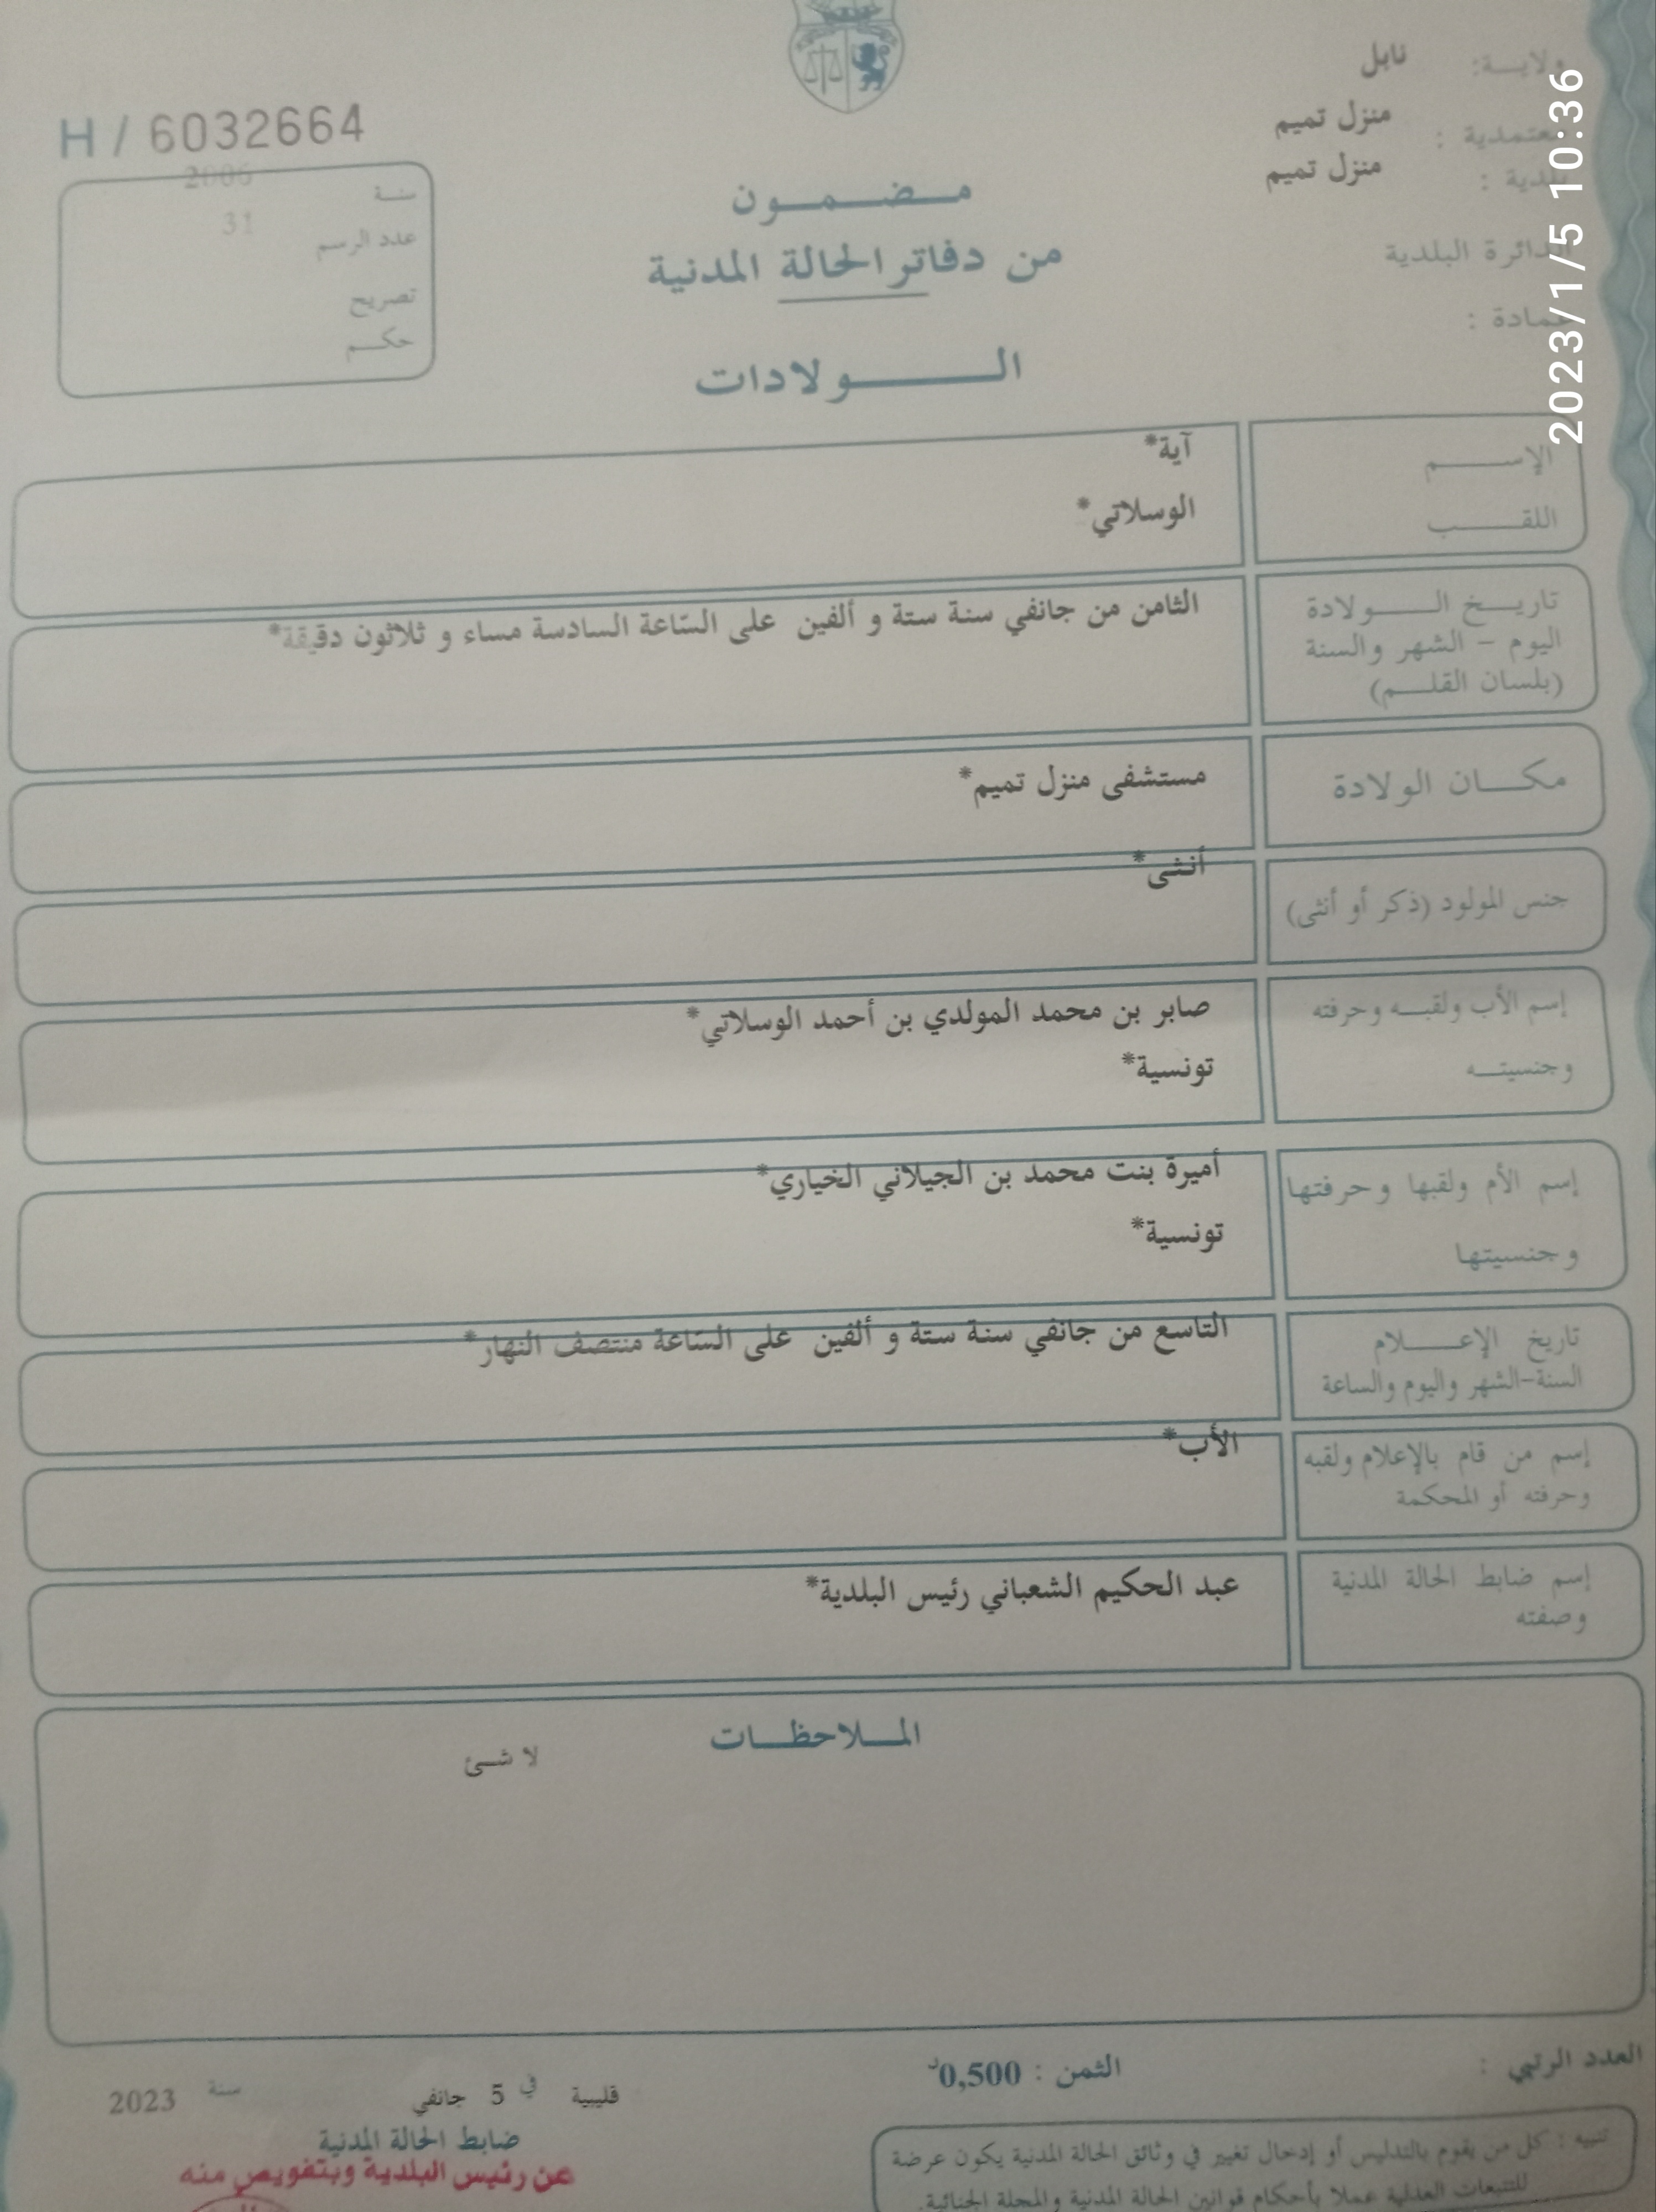 ولاية: نابل
معتمدية : منزل تميم
بلدية : منزل تميم
الدائرة البلدية
عمادة :
2023/1/5 10:36
H / 6032664
سنة 2006
عدد الرسم 31
تصريح
حكم
مضمون
من دفاتر الحالة المدنية
الولادات
الإسم آية*
اللقب الوسلاتي*
تاريخ الولادة الثامن من جانفي سنة ستة و ألفين على السّاعة السادسة مساء و ثلاثون دقيقة*
اليوم - الشهر والسنة
(بلسان القلم)
مكان الولادة مستشفى منزل تميم*
جنس المولود (ذكر أو أنثى) أنثى*
إسم الأب ولقبه وحرفته صابر بن محمد المولدي بن أحمد الوسلاتي*
وجنسيته تونسية*
إسم الأم ولقبها وحرفتها أميرة بنت محمد بن الجيلاني الخياري*
وجنسيتها تونسية*
تاريخ الإعلام التاسع من جانفي سنة ستة و ألفين على السّاعة منتصف النهار*
السنة-الشهر واليوم والساعة
إسم من قام بالإعلام ولقبه الأب*
وحرفته أو المحكمة
إسم ضابط الحالة المدنية عبد الحكيم الشعباني رئيس البلدية*
وصفته
الملاحظات
لا شئ
العدد الرتبي :
الثمن : 0,500د
قليبية في 5 جانفي سنة 2023
ضابط الحالة المدنية
عن رئيس البلدية وبتفويض منه
تنبيه : كل من يقوم بالتدليس أو إدخال تغيير في وثائق الحالة المدنية يكون عرضة
للتتبعات العدلية عملا بأحكام قوانين الحالة المدنية والمجلة الجنائية.